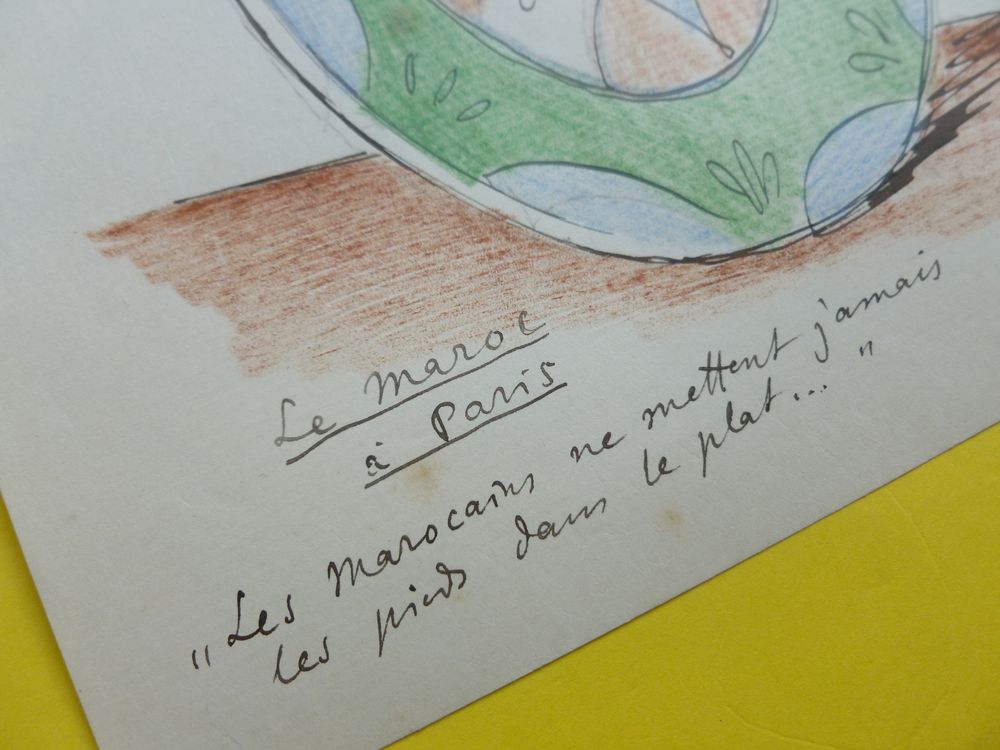 Le Maroc
à Paris
"Les Marocains ne mettent jamais
les pieds dans le plat..."